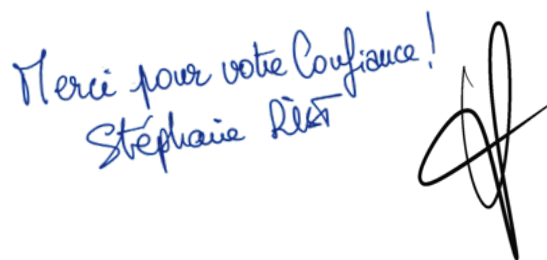 Merci pour votre Confiance !
Stéphanie